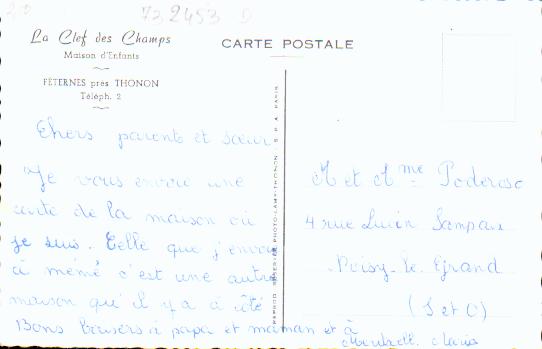 73 2453 D
La Clef des Champs
Maison d'Enfants
FÉTERNES près THONON
Téléph. 2
CARTE POSTALE
Chers parents et sœur
Je vous envoie une
carte de la maison où
je suis. Celle que j'envoie
a mémé c'est une autre
maison qu'il y a à côté
Bons baisers à papa et maman et à
M et Mme
4 rue Lucien Sampaix
Noisy-le-Grand
(S et O)